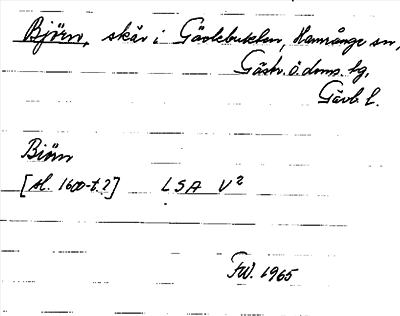 Björn, skär i Gävlebukten, Hamrånge sn,
Gästr. ö. doms. hg,
Gävb. l.
Biörn
[sl. 1600-t.?] LSA V²
FW. 1965